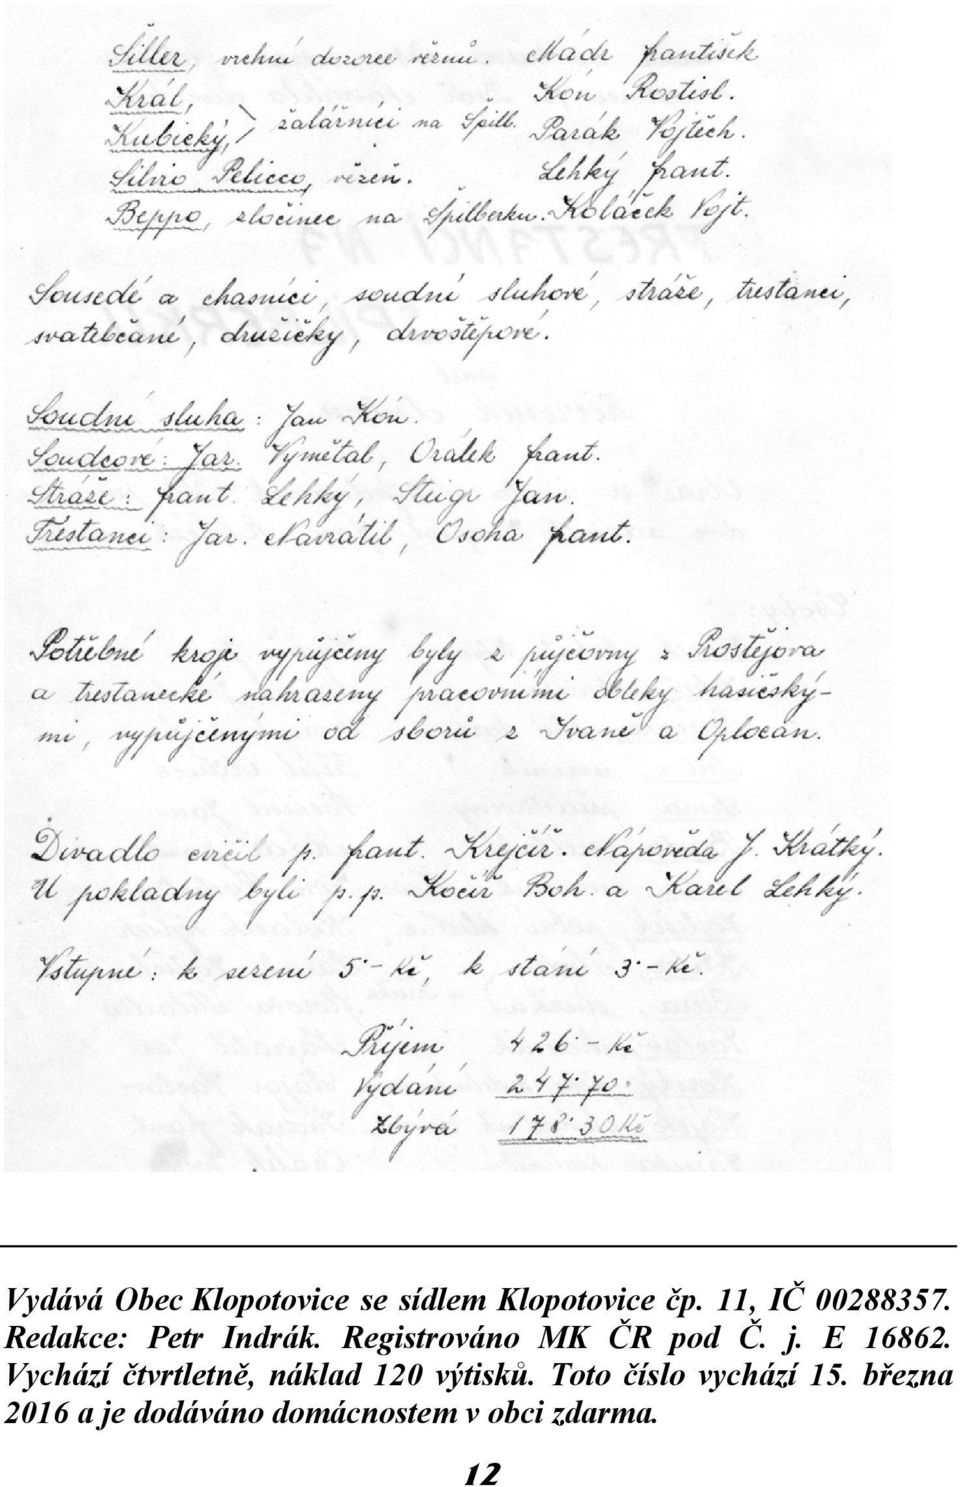 Šiller, vrchní dozorce věznů. Mádr František
Král, Kón Rostisl.
Kubický, žalářníci na Špilb. Parák Vojtěch.
Silvio Pelicco, vězeň. Lehký Frant.
Beppo, zločinec na Špilberku. Koláček Vojt.
Sousedé a chasníci, soudní sluhové, stráže, trestanci,
svatebčané, družičky, drvoštěpové.
Soudní sluha: Jan Kón.
Soudcové: Jar. Vymětal, Orálek Frant.
Stráže: Frant. Lehký, Steigr Jan.
Trestanci: Jar. Navrátil, Osoha Frant.
Potřebné kroje vypůjčeny byly z půjčovny z Prostějova
a trestanecké nahrazeny pracovními obleky hasičský-
mi, vypůjčenými od sborů z Ivaně a Oplocan.
Divadlo cvičil p. Frant. Krejčíř. Nápověda J. Krátký.
U pokladny byli p.p. Kočíř Boh. a Karel Lehký.
Vstupné: k sezení 5·- Kč, k stání 3·- Kč.
Příjem 426·- Kč
Vydání 247·70·
Zbývá 178·30 Kč
Vydává Obec Klopotovice se sídlem Klopotovice čp. 11, IČ 00288357.
Redakce: Petr Indrák. Registrováno MK ČR pod Č. j. E 16862.
Vychází čtvrtletně, náklad 120 výtisků. Toto číslo vychází 15. března
2016 a je dodáváno domácnostem v obci zdarma.
12